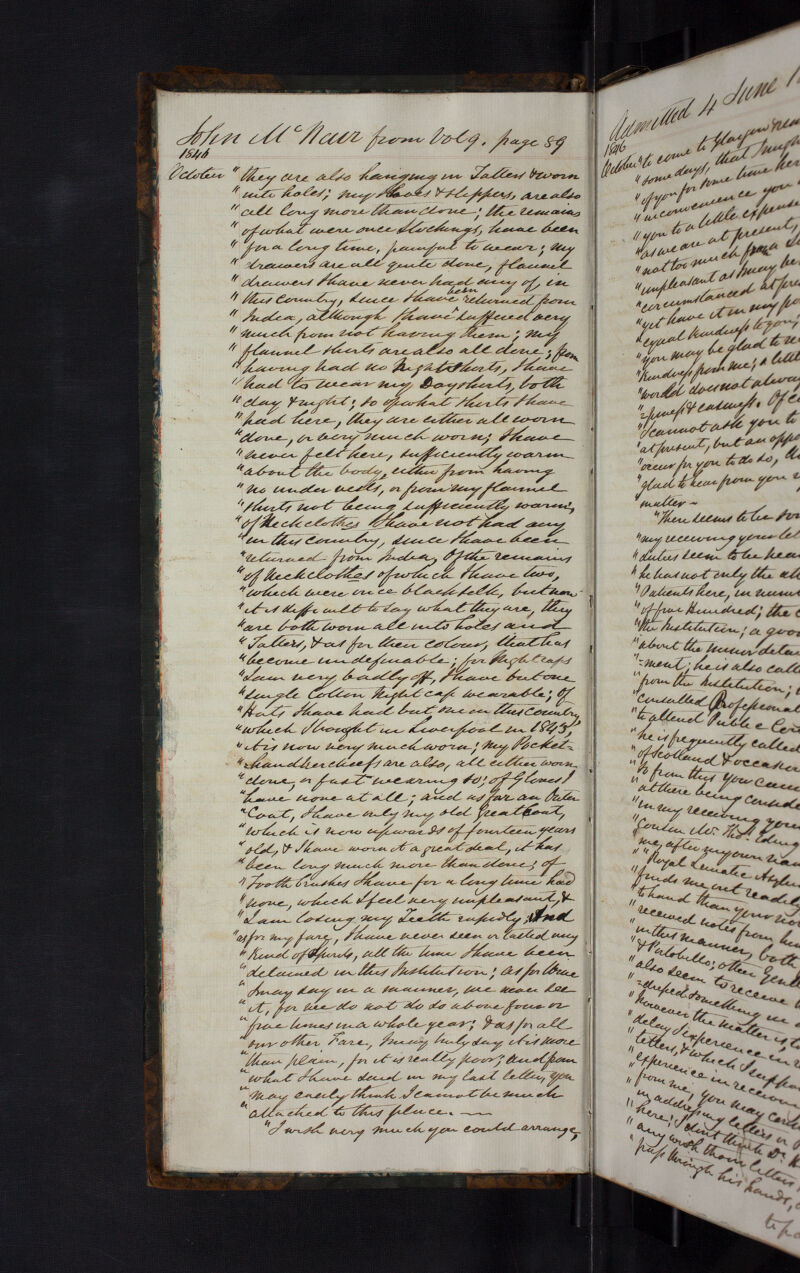 John McNair from Vol 9. page 89
1846
October "they are also hanging in Tatters & worn
"into holes; my Shoes & Slippers, are also
"all long more than done; the remains
"of what were once Stockings, have been
"for a long time, painful to wear; my
"drawers are all quite done, flannel
"drawers I have never had any of, in
"this Country, since I have been returned from
"India, although I have suffered very
"much from not having them; my
"flannel shirts are also all done; from
"having had no Night Shirts, I have
"had to wear my Dayshirts, both
"day & night; so of what shirts I have
"had here, they are either all worn
"done, or very much worn; I have
"never felt here, sufficiently warm
"about the body, either from having
"no under vests, or from my flannel
"shirts not being sufficiently warm,
"of Neckclothes I have not had any
"in this country, since I have been
"returned from India, Of the remains
"of Neckclothes of which I have two,
"which were once black silk, but now
"it is difficult to say what they are, they
"are both worn all into holes and
"Tatters, & as for their colour, that has
"become undefinable; for Night caps
"I am very badly off, I have but one
"single Cotton Night cap wearable; of
"Hats I have had but one in this country,
"which I bought in Liverpool in 1843,
"it is now very much worn; my Pocket-
"handkercheefs are also, all either worn
"done, or fast wearing so; of Gloves I
"have none at all; and as for an Outer
"Coat, I have only my old Great Coat,
"which is now upwards of fourteen years
"old, & I have worn it a great deal, it has
"been long much more than done; of
"Tooth brushes I have for a long time had
"none, which I feel very unpleasant, &
"I am losing my Teeth rapidly; And
"as for my fare, I have never seen or tasted any
"Kind of Spirits, all the time I have been
"detained in this Institution; as for Wine
"I may say in a manner, we never see
"it, for we do not do so above four or
"five times in a whole year; & as for all
"our other Fare, I may truly say it is more
"than plain, for it is really poor; and from
"what I have said in my last letter, you
"may easily think I cannot be much
"attached to this place. —
"I wish very much you could arrange,
Admitted 4 June
1846
October "to come to Glasgow
"some days, that I might
"of you for some time
"inconvenience you
"you to a little expense
"as we are at present,
"not too much from a
"unpleasant as may be
"circumstanced at
"yet have it in my
"equal kindness to you;
"you may be glad to
"kindness from me; a little
"world does not
I cannot ask you to
"at present, but an
"occur for you to do so,
"glad to hear from you
"matter ~
"There seems to be
"my receiving your
"duties seem to be
"he has not only the
"Patients here, in
"of five Hundred; the
"the Institution; a good
"about the minor
"=ment; he is also
"from the Institution;
"consulted Professional
"to attend Public
"he is frequently called
"of Scotland &
"So from this you
"at there being
"in my receiving your
"Cousin Mr. Thos.
"me, after my own
""Royal Lunatic
"finds me out readily
"to hand than your
"received notes from
"in this manner, both
"& Portobello; other
"also seem to receive
"something
"however the matter is,
"delay I experience in
"letters, & which I
"experience in
"from me, you may
"in addressing letters
"here; I dint think Dr.
"any wish them letters,
"pass through his hands,
to